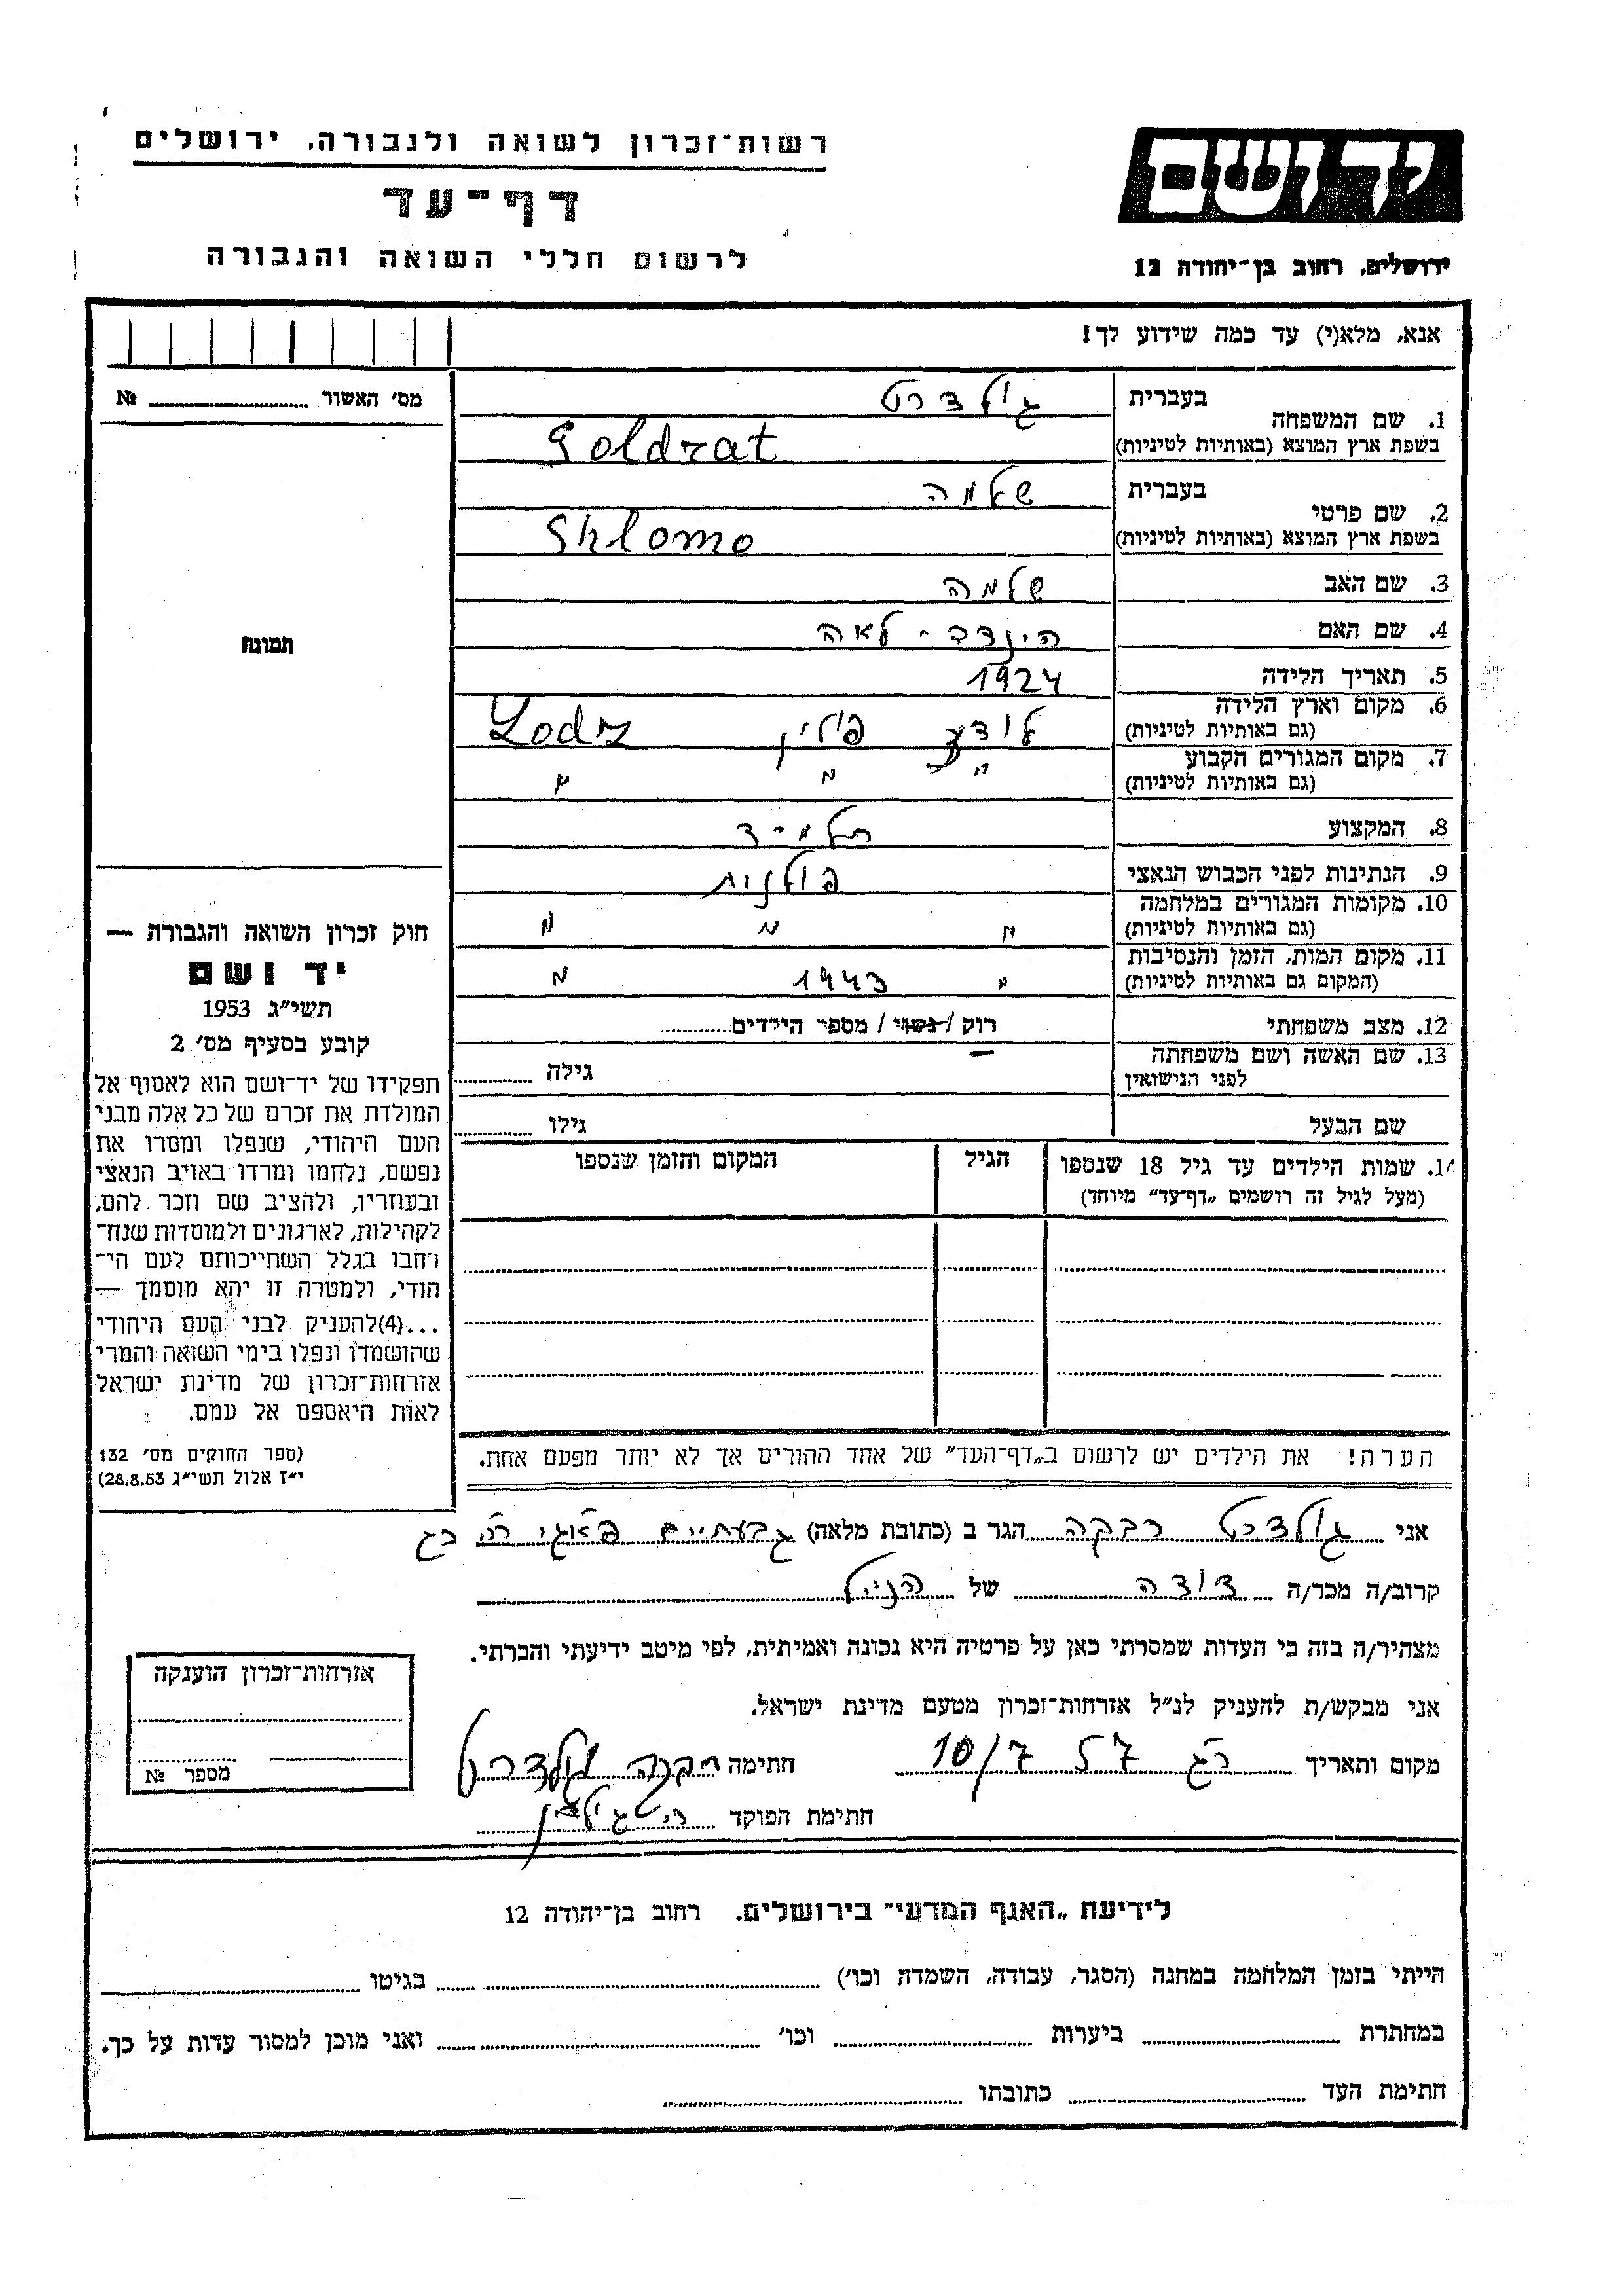 רשות־זכרון לשואה ולגבורה, ירושלים
יד ושם
דף־עד
לרשום חללי השואה והגבורה
ירושלים, רחוב בן־יהודה 12
אנא, מלא(י) עד כמה שידוע לך!
מס׳ האשור № 
1. שם המשפחה בעברית גולדרט
בשפת ארץ המוצא (באותיות לטיניות) Goldrat
2. שם פרטי בעברית שלמה
בשפת ארץ המוצא (באותיות לטיניות) Shlomo
3. שם האב שלמה
4. שם האם הינדה - לאה
5. תאריך הלידה 1924
6. מקום וארץ הלידה (גם באותיות לטיניות) לודז פולין Lodz
7. מקום המגורים הקבוע (גם באותיות לטיניות) " " "
8. המקצוע תלמיד
9. הנתינות לפני הכבוש הנאצי פולנית
10. מקומות המגורים במלחמה (גם באותיות לטיניות) " " "
11. מקום המות, הזמן והנסיבות (המקום גם באותיות לטיניות) " 1943 "
12. מצב משפחתי רוק / נשוי / מספר הילדים
13. שם האשה ושם משפחתה לפני הנישואין גילה
שם הבעל גילו
14. שמות הילדים עד גיל 18 שנספו הגיל המקום והזמן שנספו
(מעל לגיל זה רושמים „דף־עד” מיוחד)
הערה! את הילדים יש לרשום ב„דף־העד” של אחד ההורים אך לא יותר מפעם אחת.
תמונה
חוק זכרון השואה והגבורה —
יד ושם
תשי״ג 1953
קובע בסעיף מס׳ 2
תפקידו של יד־ושם הוא לאסוף אל
המולדת את זכרם של כל אלה מבני
העם היהודי, שנפלו ומסרו את
נפשם, נלחמו ומרדו באויב הנאצי
ובעוזריו, ולהציב שם וזכר להם,
לקהילות, לארגונים ולמוסדות שנח־
רבו בגלל השתייכותם לעם הי־
הודי, ולמטרה זו יהא מוסמך —
...(4)להעניק לבני העם היהודי
שהושמדו ונפלו בימי השואה והמרי
אזרחות־זכרון של מדינת ישראל
לאות היאספם אל עמם.
(ספר החוקים מס׳ 132
י״ז אלול תשי״ג 28.8.53)
אני גולדרט רבקה הגר ב (כתובת מלאה) גבעתיים
קרוב/ה מכר/ה דודה של הנ״ל
מצהיר/ה בזה כי העדות שמסרתי כאן על פרטיה היא נכונה ואמיתית, לפי מיטב ידיעתי והכרתי.
אני מבקש/ת להעניק לנ״ל אזרחות־זכרון מטעם מדינת ישראל.
מקום ותאריך רג 10/7 57 חתימה רבקה גולדרט
חתימת הפוקד
אזרחות־זכרון הוענקה
מספר №
לידיעת „האגף המדעי” בירושלים. רחוב בן־יהודה 12
הייתי בזמן המלחמה במחנה (הסגר, עבודה, השמדה וכו׳) בגיטו
במחתרת ביערות וכו׳ ואני מוכן למסור עדות על כך.
חתימת העד כתובתו